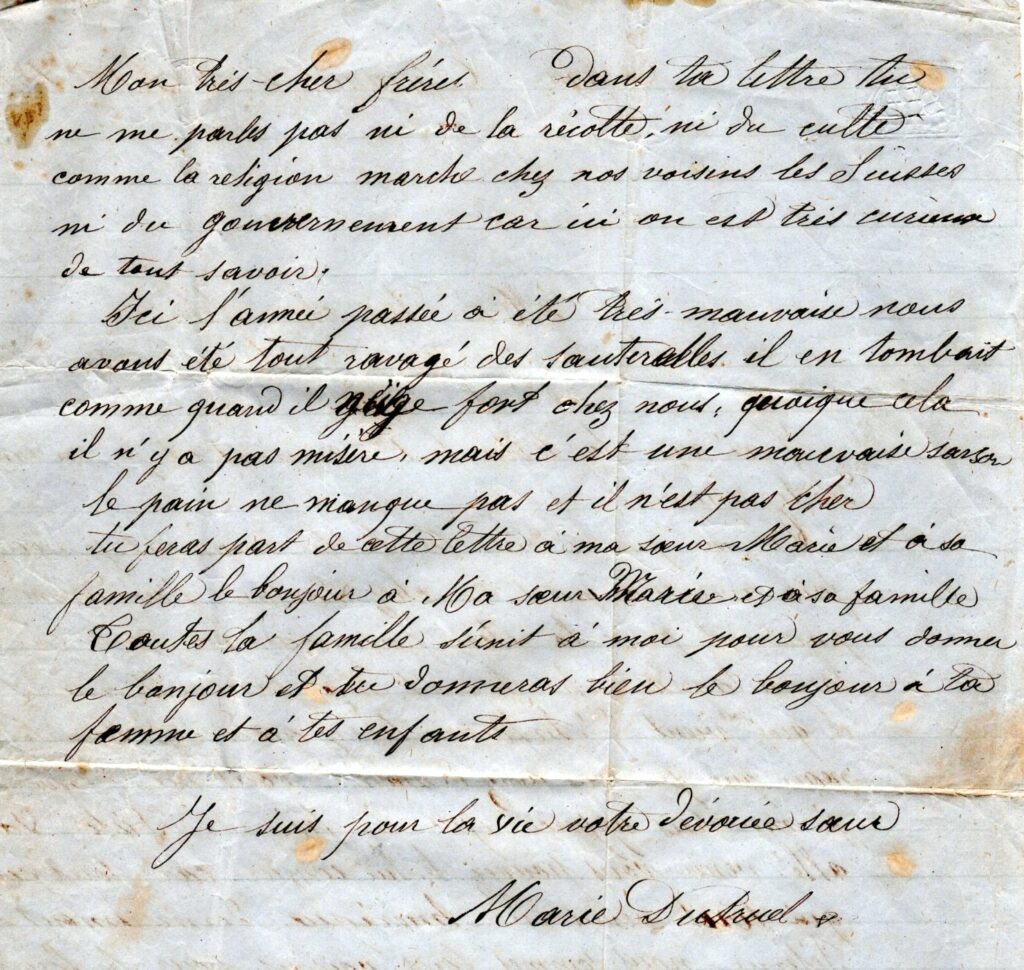 Mon très-cher frère dans ta lettre tu
ne me parles pas ni de la récolte, ni du culte
comme la religion marche chez nos voisins les Suisses
ni du gouvernement car ici on est très curieux
de tout savoir.
Ici l'année passée a été très-mauvaise nous
avons été tout ravagé des sauterelles il en tombait
comme quand il neige fort chez nous, quoique cela
il n'y a pas misère, mais c'est une mauvaise saison
le pain ne manque pas et il n'est pas cher
tu feras part de cette lettre à ma sœur Marie et à sa
famille le bonjour à Ma sœur Marie et à sa famille
Toutes la famille s'unit à moi pour vous donner
le bonjour et tu donneras bien le bonjour à ta
femme et à tes enfants
Je suis pour la vie votre dévouée sœur
Marie